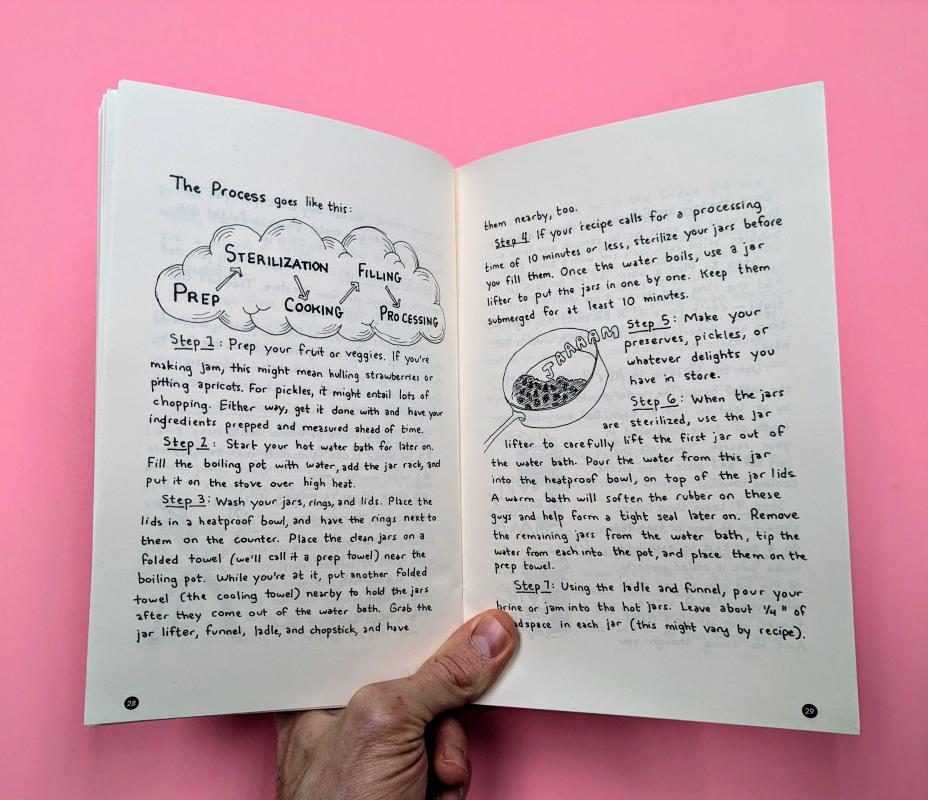 The Process goes like this:
PREP
STERILIZATION
COOKING
FILLING
PROCESSING
Step 1: Prep your fruit or veggies. If you're
making jam, this might mean hulling strawberries or
pitting apricots. For pickles, it might entail lots of
chopping. Either way, get it done with and have your
ingredients prepped and measured ahead of time.
Step 2: Start your hot water bath for later on.
Fill the boiling pot with water, add the jar rack, and
put it on the stove over high heat.
Step 3: Wash your jars, rings, and lids. Place the
lids in a heatproof bowl, and have the rings next to
them on the counter. Place the clean jars on a
folded towel (we'll call it a prep towel) near the
boiling pot. While you're at it, put another folded
towel (the cooling towel) nearby to hold the jars
after they come out of the water bath. Grab the
jar lifter, funnel, ladle, and chopstick, and have
28
them nearby, too.
Step 4: If your recipe calls for a processing
time of 10 minutes or less, sterilize your jars before
you fill them. Once the water boils, use a jar
lifter to put the jars in one by one. Keep them
submerged for at least 10 minutes.
JAAAAAM
Step 5: Make your
preserves, pickles, or
whatever delights you
have in store.
Step 6: When the jars
are sterilized, use the jar
lifter to carefully lift the first jar out of
the water bath. Pour the water from this jar
into the heatproof bowl, on top of the jar lids.
A warm bath will soften the rubber on these
guys and help form a tight seal later on. Remove
the remaining jars from the water bath, tip the
water from each into the pot, and place them on the
prep towel.
Step 7: Using the ladle and funnel, pour your
brine or jam into the hot jars. Leave about 1/4" of
in each jar (this might vary by recipe).
29